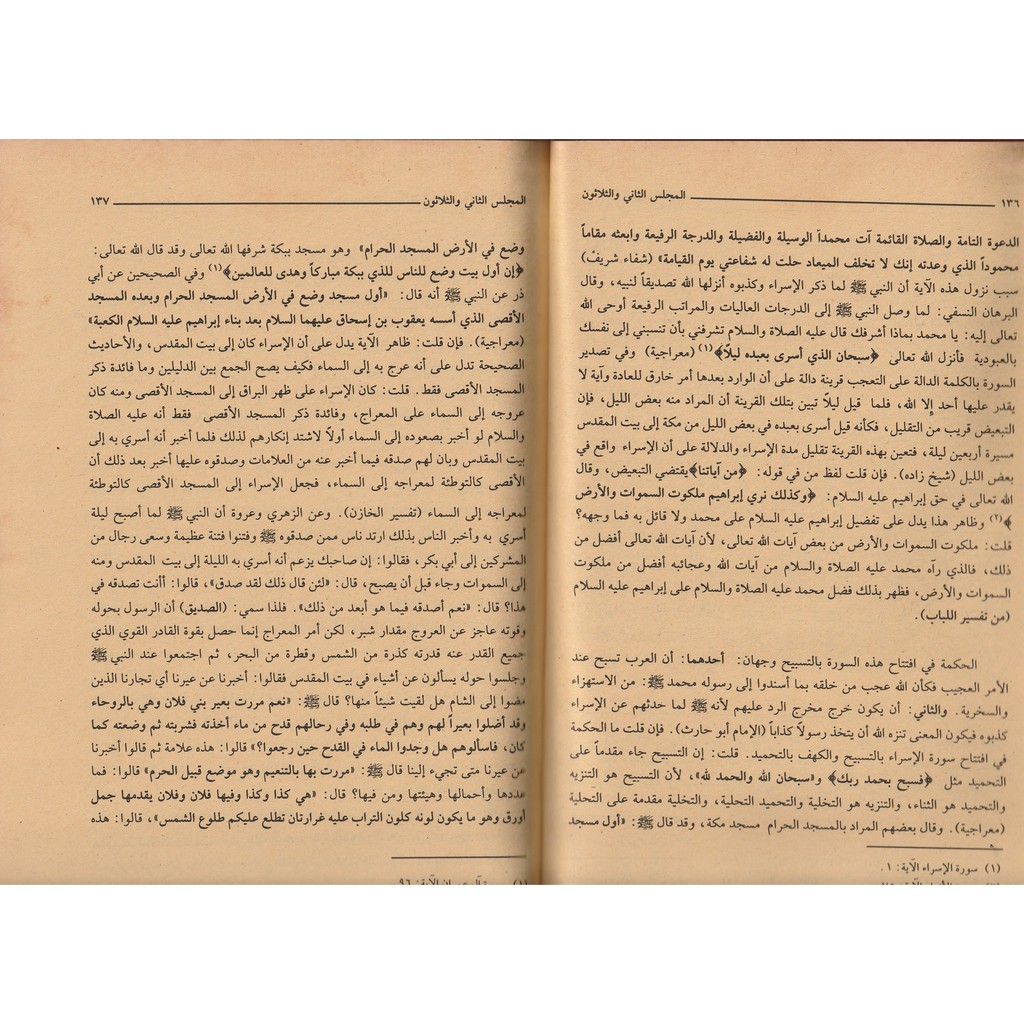 ١٣٦ المجلس الثاني والثلاثون
الدعوة التامة والصلاة القائمة آت محمداً الوسيلة والفضيلة والدرجة الرفيعة وابعثه مقاماً
محموداً الذي وعدته إنك لا تخلف الميعاد حلت له شفاعتي يوم القيامة» (شفاء شريف)
سبب نزول هذه الآية أن النبي ﷺ لما ذكر الإسراء وكذبوه أنزلها الله تصديقاً لنبيه، وقال
البرهان النسفي: لما وصل النبي ﷺ إلى الدرجات العاليات والمراتب الرفيعة أوحى الله
تعالى إليه: يا محمد بماذا أشرفك قال عليه الصلاة والسلام تشرفني بأن تنسبني إلى نفسك
بالعبودية فأنزل الله تعالى ﴿سبحان الذي أسرى بعبده ليلاً﴾(١) (معراجية) وفي تصدير
السورة بالكلمة الدالة على التعجب قرينة دالة على أن الوارد بعدها أمر خارق للعادة وآية لا
يقدر عليها أحد إلا الله، فلما قيل ليلاً تبين بتلك القرينة أن المراد منه بعض الليل، فإن
التبعيض قريب من التقليل، فكأنه قيل أسرى بعبده في بعض الليل من مكة إلى بيت المقدس
مسيرة أربعين ليلة، فتعين بهذه القرينة تقليل مدة الإسراء والدلالة على أن الإسراء واقع في
بعض الليل (شيخ زاده). فإن قلت لفظ من في قوله: ﴿من آياتنا﴾ يقتضي التبعيض، وقال
الله تعالى في حق إبراهيم عليه السلام: ﴿وكذلك نري إبراهيم ملكوت السموات والأرض
﴾(٢) وظاهر هذا يدل على تفضيل إبراهيم عليه السلام على محمد ولا قائل به فما وجهه؟
قلت: ملكوت السموات والأرض من بعض آيات الله تعالى، لأن آيات الله تعالى أفضل من
ذلك، فالذي رآه محمد عليه الصلاة والسلام من آيات الله وعجائبه أفضل من ملكوت
السموات والأرض، فظهر بذلك فضل محمد عليه الصلاة والسلام على إبراهيم عليه السلام
(من تفسير اللباب).
الحكمة في افتتاح هذه السورة بالتسبيح وجهان: أحدهما: أن العرب تسبح عند
الأمر العجيب فكأن الله عجب من خلقه بما أسندوا إلى رسوله محمد ﷺ: من الاستهزاء
والسخرية. والثاني: أن يكون خرج مخرج الرد عليهم لأنه ﷺ لما حدثهم عن الإسراء
كذبوه فيكون المعنى تنزه الله أن يتخذ رسولاً كذاباً (الإمام أبو حارث). فإن قلت ما الحكمة
في افتتاح سورة الإسراء بالتسبيح والكهف بالتحميد. قلت: إن التسبيح جاء مقدماً على
التحميد مثل ﴿فسبح بحمد ربك﴾ و«سبحان الله والحمد لله»، لأن التسبيح هو التنزيه
والتحميد هو الثناء، والتنزيه هو التخلية والتحميد التحلية، والتخلية مقدمة على التحلية
(معراجية). وقال بعضهم المراد بالمسجد الحرام مسجد مكة، وقد قال ﷺ: «أول مسجد
(١) سورة الإسراء الآية: ١.
المجلس الثاني والثلاثون ١٣٧
وضع في الأرض المسجد الحرام» وهو مسجد ببكة شرفها الله تعالى وقد قال الله تعالى:
﴿إن أول بيت وضع للناس للذي ببكة مباركاً وهدى للعالمين﴾(١) وفي الصحيحين عن أبي
ذر عن النبي ﷺ أنه قال: «أول مسجد وضع في الأرض المسجد الحرام وبعده المسجد
الأقصى الذي أسسه يعقوب بن إسحاق عليهما السلام بعد بناء إبراهيم عليه السلام الكعبة»
(معراجية). فإن قلت: ظاهر الآية يدل على أن الإسراء كان إلى بيت المقدس، والأحاديث
الصحيحة تدل على أنه عرج به إلى السماء فكيف يصح الجمع بين الدليلين وما فائدة ذكر
المسجد الأقصى فقط. قلت: كان الإسراء على ظهر البراق إلى المسجد الأقصى ومنه كان
عروجه إلى السماء على المعراج، وفائدة ذكر المسجد الأقصى فقط أنه عليه الصلاة
والسلام لو أخبر بصعوده إلى السماء أولاً لاشتد إنكارهم لذلك فلما أخبر أنه أسري به إلى
بيت المقدس وبان لهم صدقه فيما أخبر عنه من العلامات وصدقوه عليها أخبر بعد ذلك أن
الأقصى كالتوطئة لمعراجه إلى السماء، فجعل الإسراء إلى المسجد الأقصى كالتوطئة
لمعراجه إلى السماء (تفسير الخازن). وعن الزهري وعروة أن النبي ﷺ لما أصبح ليلة
أسري به وأخبر الناس بذلك ارتد ناس ممن صدقوه ﷺ وفتنوا فتنة عظيمة وسعى رجال من
المشركين إلى أبي بكر، فقالوا: إن صاحبك يزعم أنه أسري به الليلة إلى بيت المقدس ومنه
إلى السموات وجاء قبل أن يصبح، قال: «لئن قال ذلك لقد صدق»، قالوا: أأنت تصدقه في
هذا؟ قال: «نعم أصدقه فيما هو أبعد من ذلك». فلذا سمي: (الصديق) أن الرسول بحوله
وقوته عاجز عن العروج مقدار شبر، لكن أمر المعراج إنما حصل بقوة القادر القوي الذي
جميع القدر عنه قدرته كذرة من الشمس وقطرة من البحر، ثم اجتمعوا عند النبي ﷺ
وجلسوا حوله يسألون عن أشياء في بيت المقدس فقالوا: أخبرنا عن عيرنا أي تجارنا الذين
مضوا إلى الشام هل لقيت شيئاً منها؟ قال ﷺ: «نعم مررت بعير بني فلان وهي بالروحاء
وقد أضلوا بعيراً لهم وهم في طلبه وفي رحالهم قدح من ماء أخذته فشربته ثم وضعته كما
كان، فاسألوهم هل وجدوا الماء في القدح حين رجعوا؟» قالوا: هذه علامة ثم قالوا أخبرنا
عن عيرنا متى تجيء إلينا قال ﷺ: «مررت بها بالتنعيم وهو موضع قبيل الحرم» قالوا: فما
عددها وأحمالها وهيئتها ومن فيها؟ قال: «هي كذا وكذا وفيها فلان وفلان يقدمها جمل
أورق وهو ما يكون لونه كلون التراب عليه غرارتان تطلع عليكم طلوع الشمس»، قالوا: هذه
(١) سورة آل عمران الآية: ٩٦.